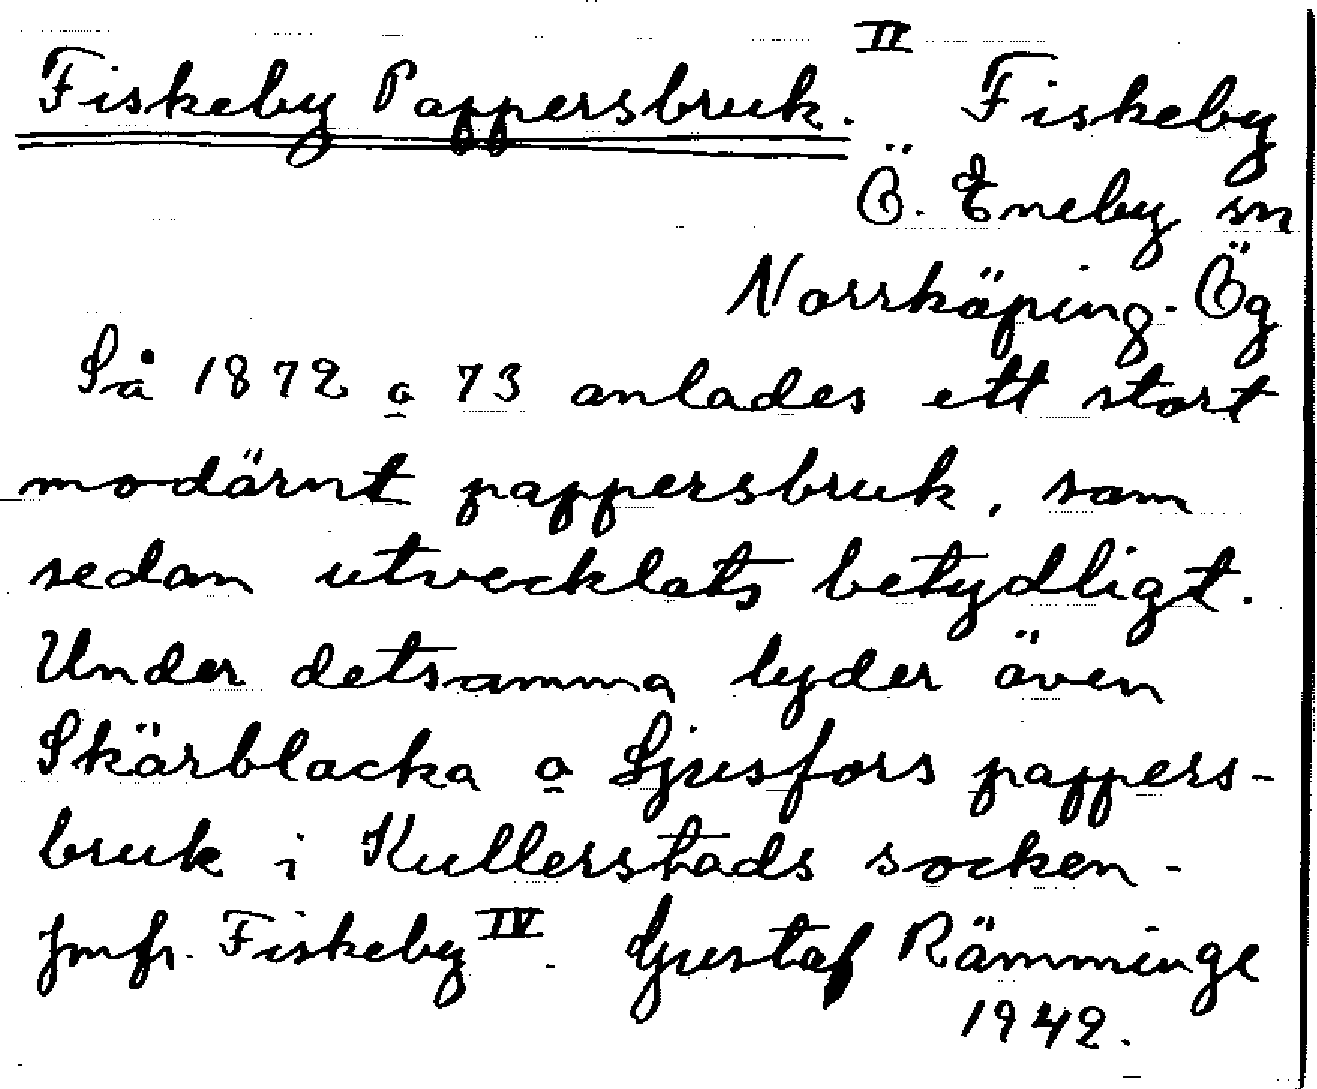 Fiskeby Pappersbruk. II Fiskeby
Ö. Eneby sn
Norrköping. Ög
Så 1872 o 73 anlades ett stort
modärnt pappersbruk, som
sedan utvecklats betydligt.
Under detsamma lyder även
Skärblacka o Ljusfors pappers-
bruk i Kullerstads socken -
Jmfr. Fiskeby IV. Gustaf Rämminge
1942.